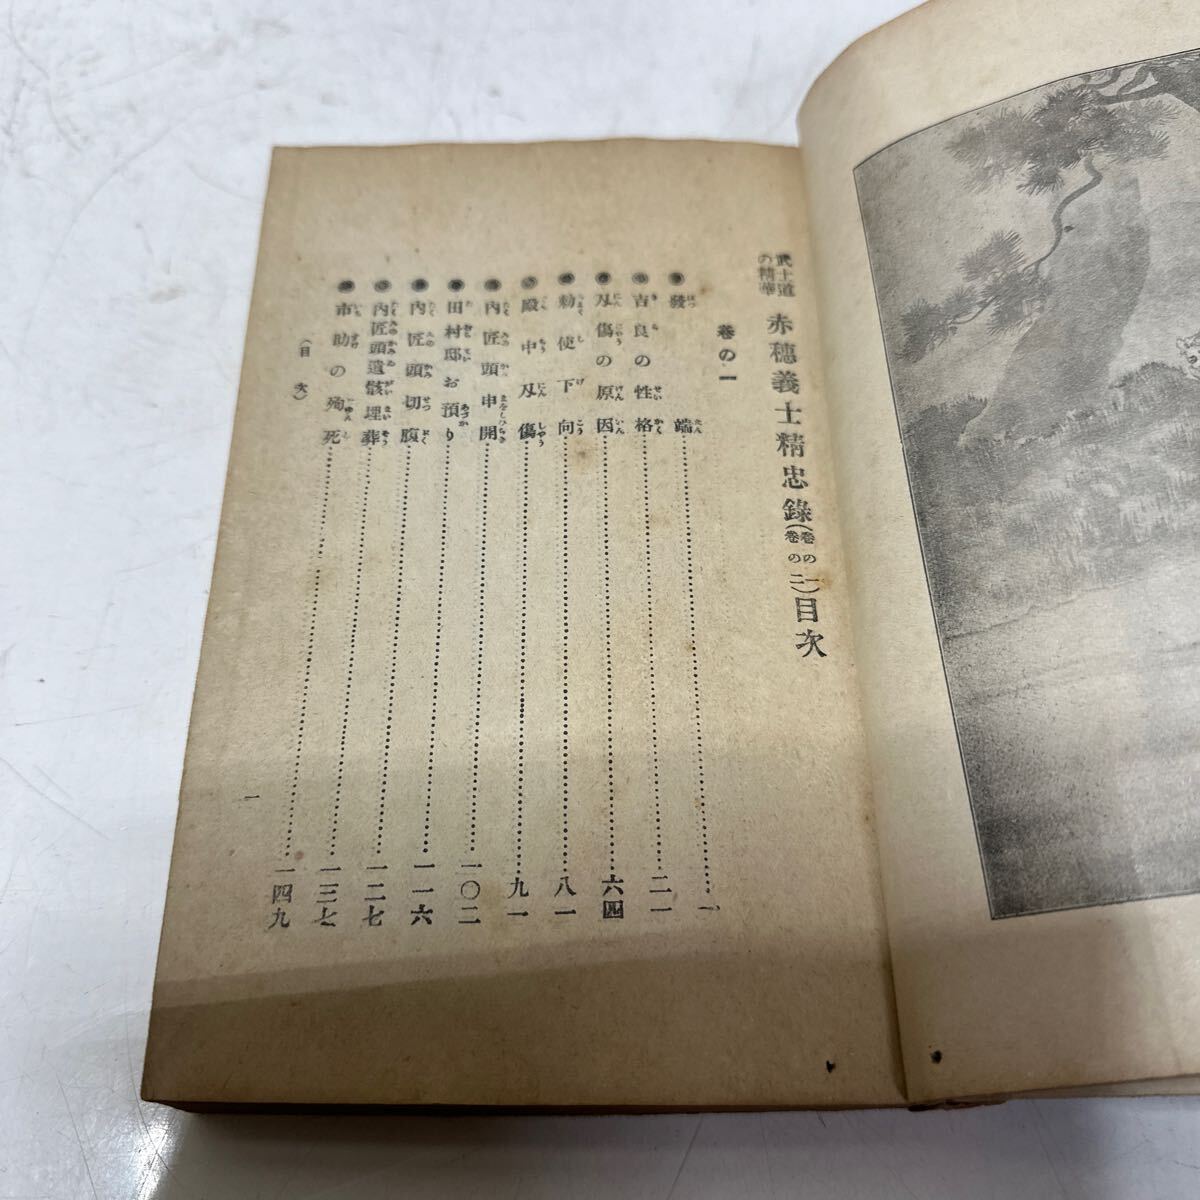 武士道の精華 赤穗義士精忠錄(卷の一卷の二)目次
卷の一
發端 一
吉良の性格 二一
刄傷の原因 六四
勅使下向 八一
殿中刄傷 九一
內匠頭申開 一〇二
田村邸お預り 一一六
內匠頭切腹 一二七
內匠頭遺骸埋葬 一三七
市助の殉死 一四九
(目次)
一